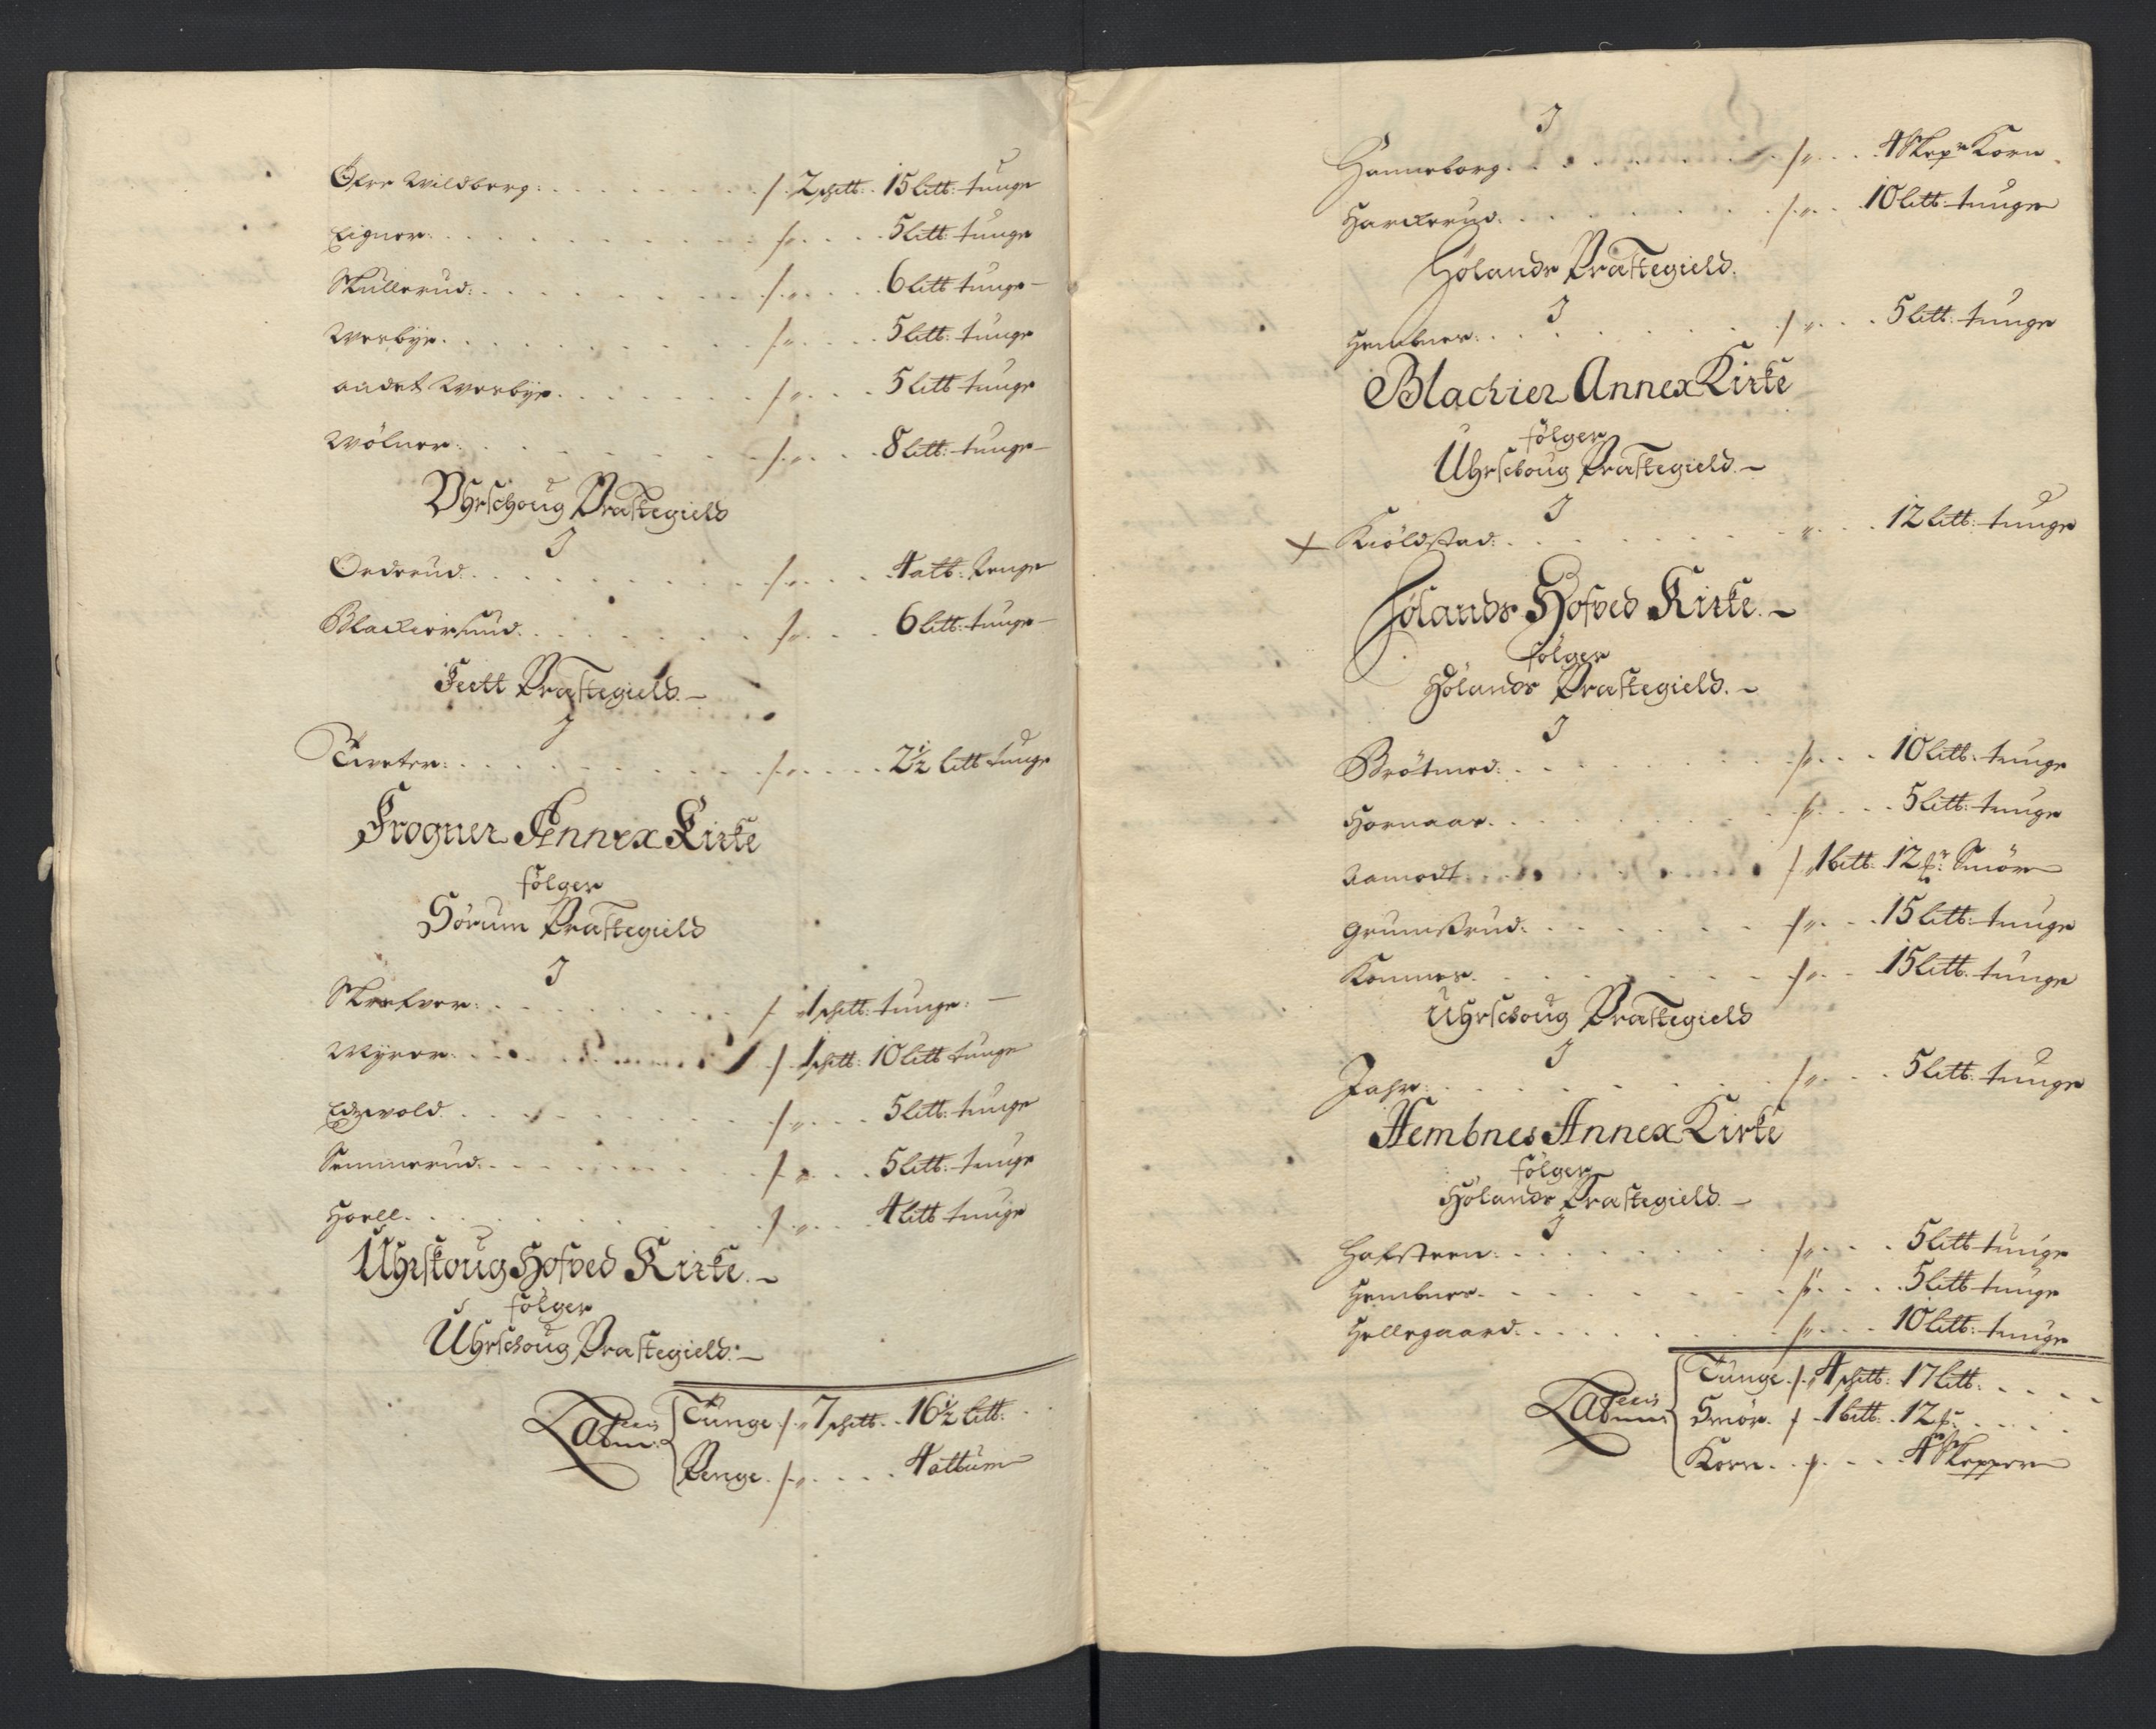 Øfre Wildberg: / 2 schtt: 15 litt: tunge
Eigner: / „ 5 litt: tunge
Skullerud: / „ 6 litt tunge
Werbye / „ 5 litt: tunge
andet Werbye / „ 5 litt tunge
Wølner: / „ 8 litt: tunge
Uhrschoug Præstegield
I
Orderud: / „ 4 alb: Penge
Blackiersund / „ 6 litt: tunge
Feett Præstegield
I
Tveter: / „ 2½ litt tunge
Frogner Annex Kirke
følger
Sørum Præstegield
I
Skrefver: / 1 schtt: tunge:
Myrer: / 1 schtt: 10 litt tunge
Edzvold / „ 5 litt: tunge
Semmerud: / „ 5 litt: tunge
Hoell / „ 4 litt tunge
Uhrskoug Hofved Kirke
følger
Uhrschoug Præstegield:
Lateris Tunge / „ 7 schtt: 16½ litt:
Penge / „ 4 alb
I
Hanneborg / „ 4 Skepr Korn
Harckerud / „ 10 litt: tunge
Hølands Præstegield.
I
Hembnes: / „ 5 litt: tunge
Blachier Annex Kirke
følger
Uhrschoug Præstegield
I
+ Kiöldstad: „ 12 litt: tunge
Hølands Hofved Kirke
følger
Hølands Præstegield.
I
Brötmed: / „ 10 litt: tunge
Hornaas / „ 5 litt: tunge
Aamodt / „ 1 bitt: 12 Smör
Grumstrud: / „ 15 litt: tunge
Kommes / „ 15 litt. tunge
Uhrschoug Præstegield
I
Jahr: / „ 5 litt: tunge
Hembnes Annex Kirke
følger
Hølands Præstegield
I
Hafsteen: / „ 5 litt tunge
Hembnes / „ 5 litt tunge
Hellegaard / „ 10 litt: tunge
Lateris Tunge / „ 4 schtt: 17 litt:
Smör / 1 bitt: 12
Korn / „ 4 Skepper